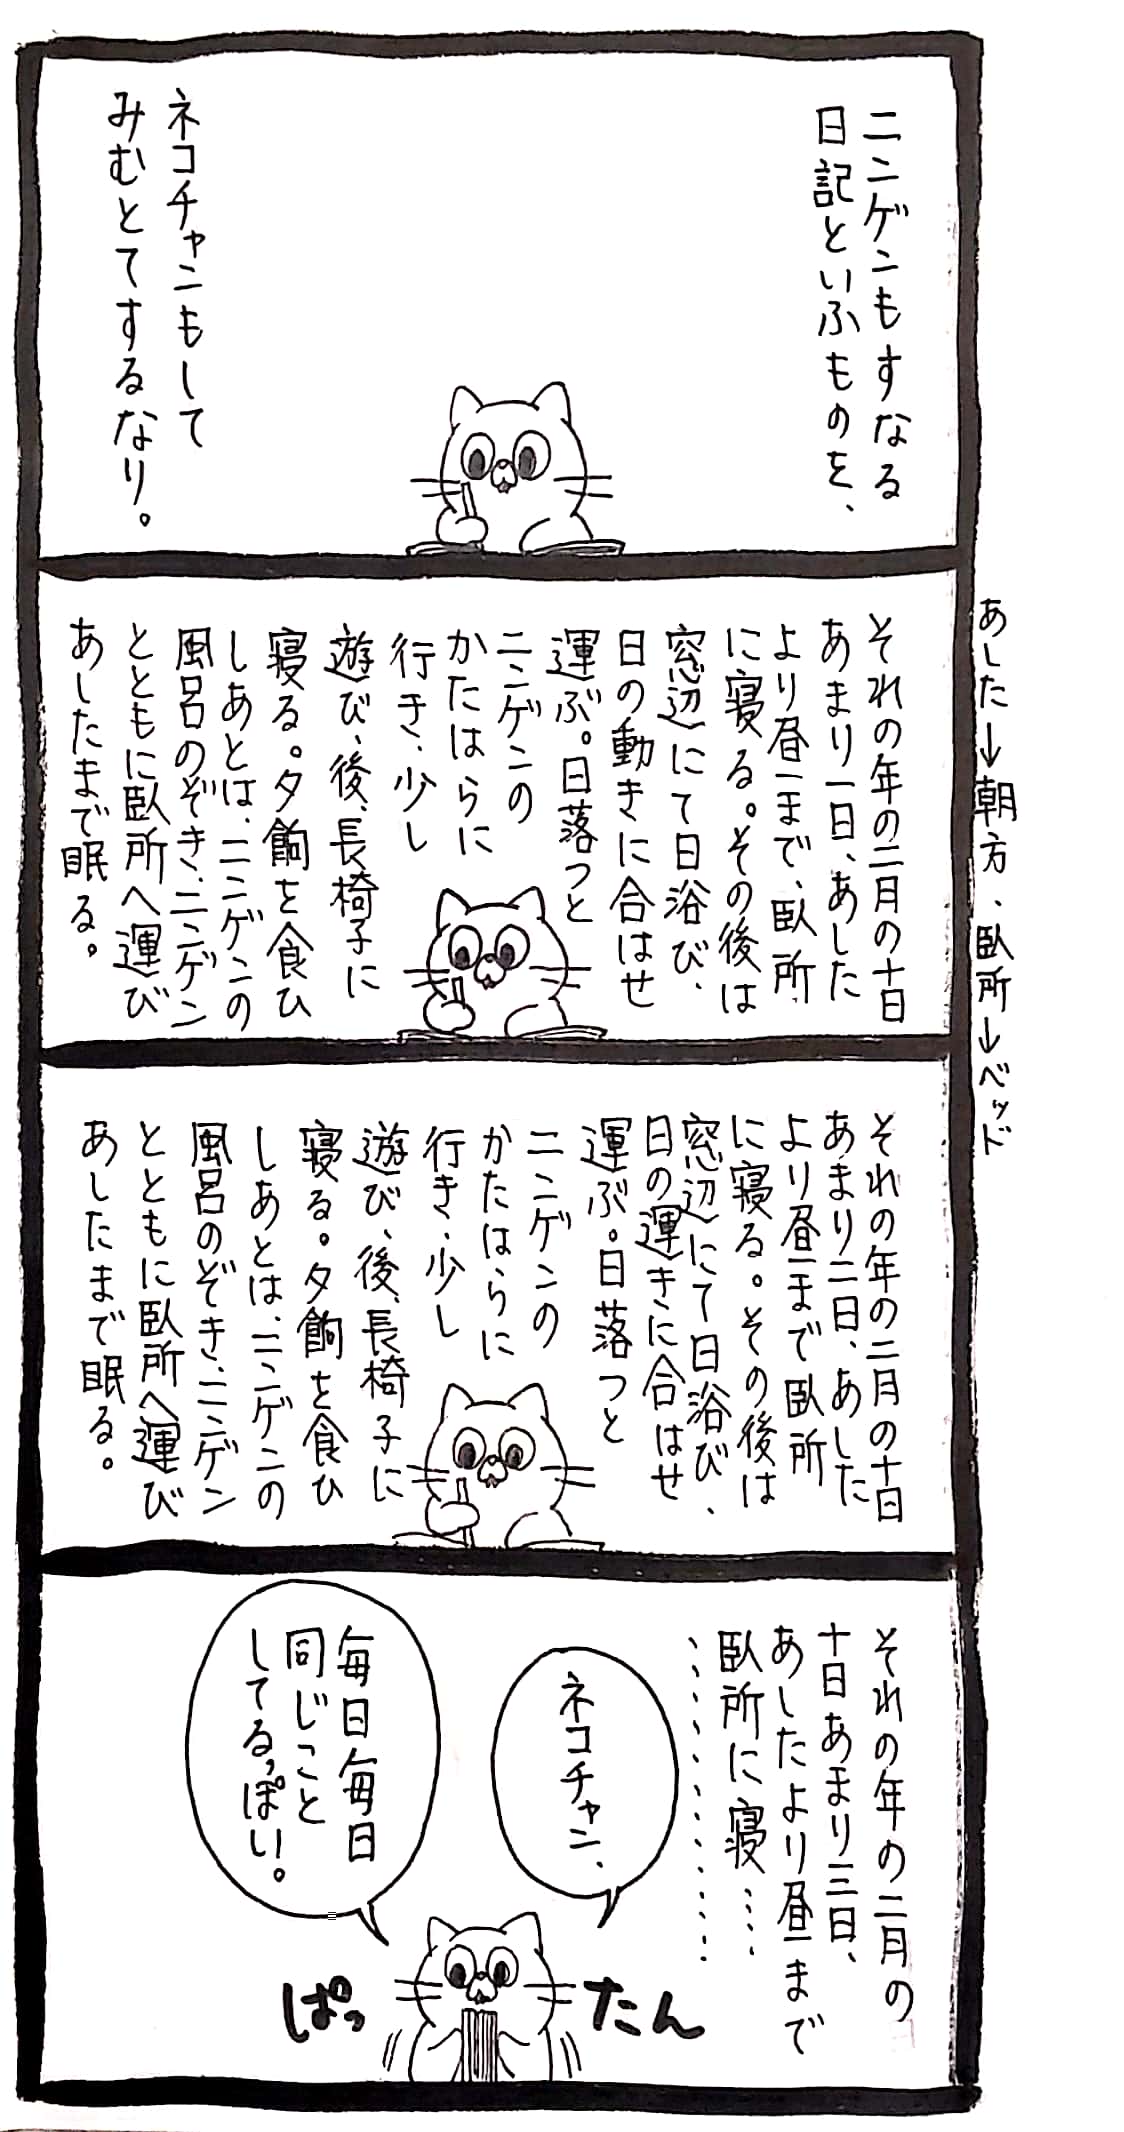 ニンゲンもすなる
日記といふものを、
ネコチャンもして
みむとてするなり。
あした→朝方、臥所→ベッド
それの年の二月の十日
あまり一日、あした
より昼まで、臥所
に寝る。その後は
窓辺にて日浴び、
日の動きに合はせ
運ぶ。日落つと
ニンゲンの
かたはらに
行き、少し
遊び、後、長椅子に
寝る。夕餉を食ひ
しあとは、ニンゲンの
風呂のぞき、ニンゲン
とともに臥所へ運び
あしたまで眠る。
それの年の二月の十日
あまり二日、あした
より昼まで臥所
に寝る。その後は
窓辺にて日浴び、
日の運きに合はせ
運ぶ。日落つと
ニンゲンの
かたはらに
行き、少し
遊び、後、長椅子に
寝る。夕餉を食ひ
しあとは、ニンゲンの
風呂のぞき、ニンゲン
とともに臥所へ運び
あしたまで眠る。
それの年の二月の
十日あまり三日、
あしたより昼まで
臥所に寝……
……………
ネコチャン、
毎日毎日
同じこと
してるっぽい。
ぱったん